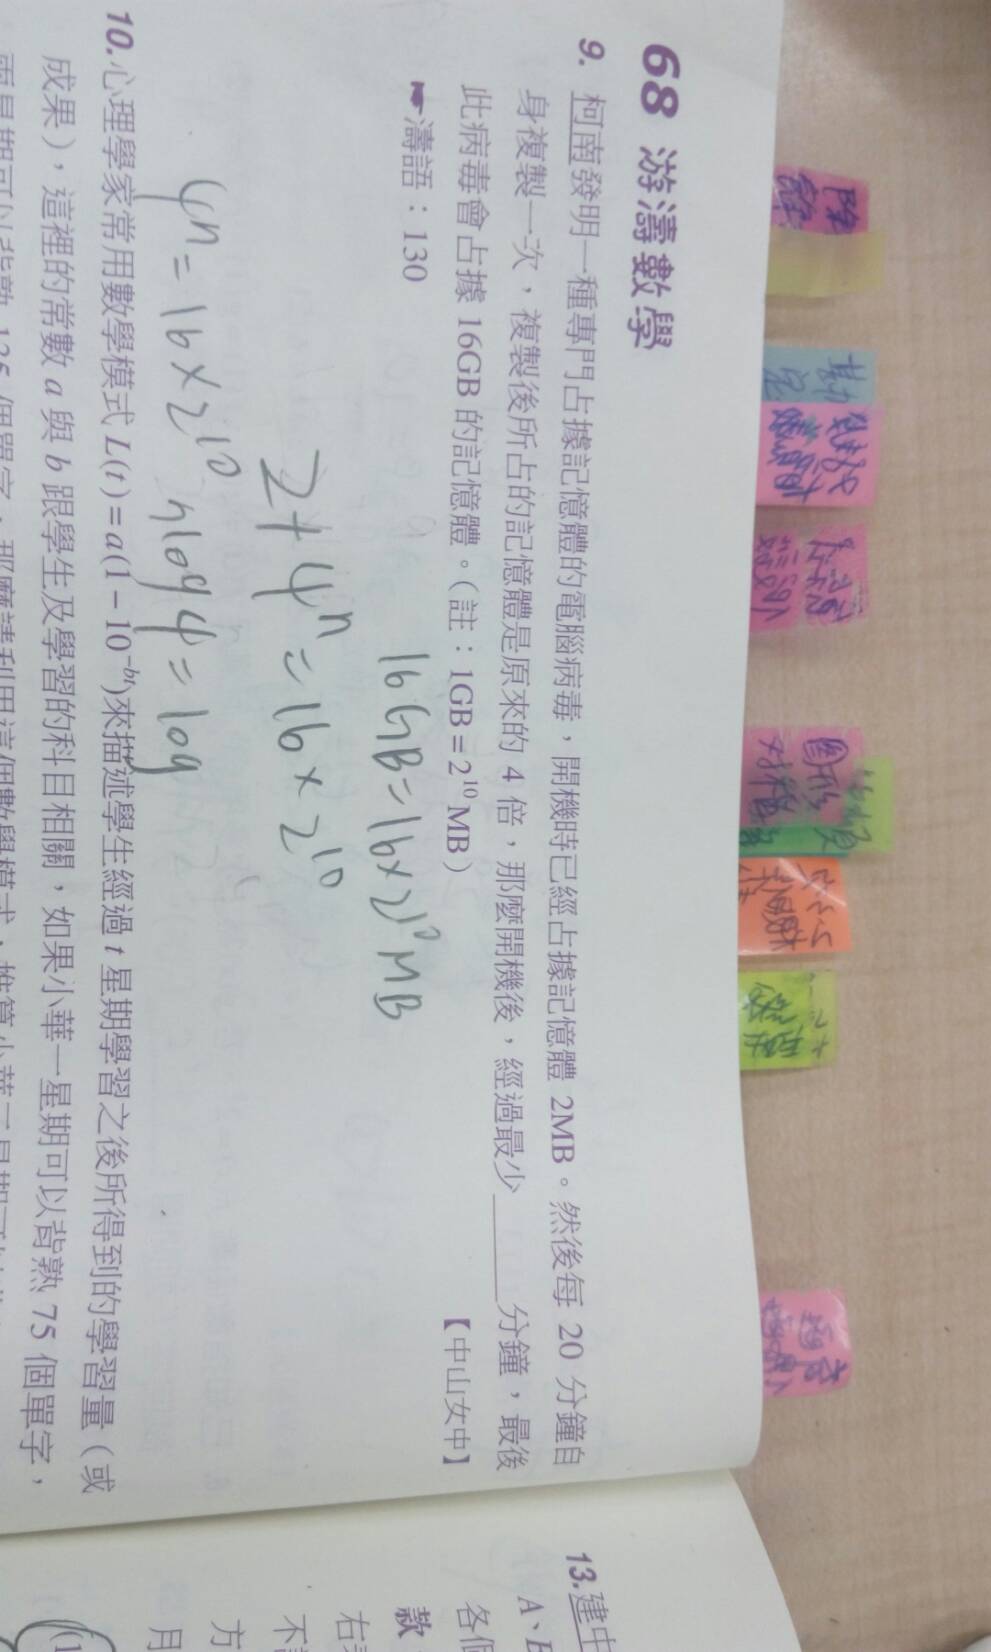 68 游濤數學
9. 柯南發明一種專門占據記憶體的電腦病毒，開機時已經占據記憶體 2MB。然後每 20 分鐘自
身複製一次，複製後所占的記憶體是原來的 4 倍，那麼開機後，經過最少______分鐘，最後
此病毒會占據 16GB 的記憶體。（註：1GB = 2¹⁰ MB）【中山女中】
☛濤語：130
16GB = 16×2¹⁰ MB
2+4ⁿ = 16×2¹⁰
4n = 16×2¹⁰
nlog4 = log
10. 心理學家常用數學模式 L(t) = a(1 − 10⁻ᵇᵗ)來描述學生經過 t 星期學習之後所得到的學習量（或
成果），這裡的常數 a 與 b 跟學生及學習的科目相關，如果小華一星期可以背熟 75 個單字，
兩星期可以背熟 125 個單字，那麼請利用這個數學模式，推算小華三星期
13. 建中
A、B
各個
款
右
不
方
月
(1